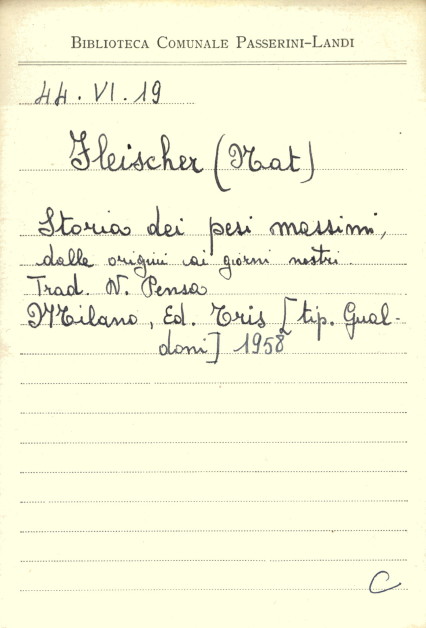 BIBLIOTECA COMUNALE PASSERINI-LANDI
44. VI. 19
Fleischer (Nat)
Storia dei pesi massimi,
dalle origini ai giorni nostri.
Trad. N. Pensa
Milano, Ed. Eris [tip. Gual-
doni] 1958
C